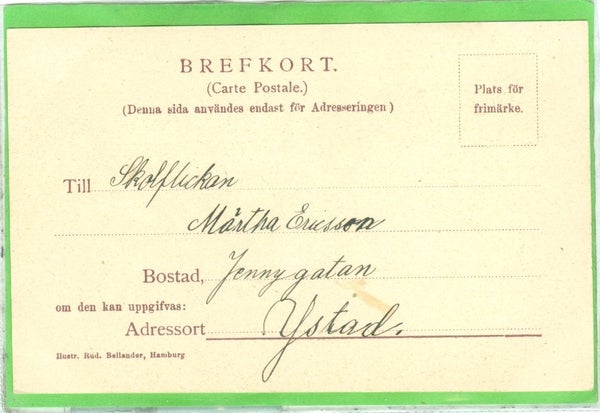 BREFKORT.
(Carte Postale.)
(Denna sida användes endast för Adresseringen)
Plats för
frimärke.
Till Skolflickan
Märtha Ericsson
Bostad, Jennygatan
om den kan uppgifvas:
Adressort Ystad.
Illustr. Rud. Bellander, Hamburg